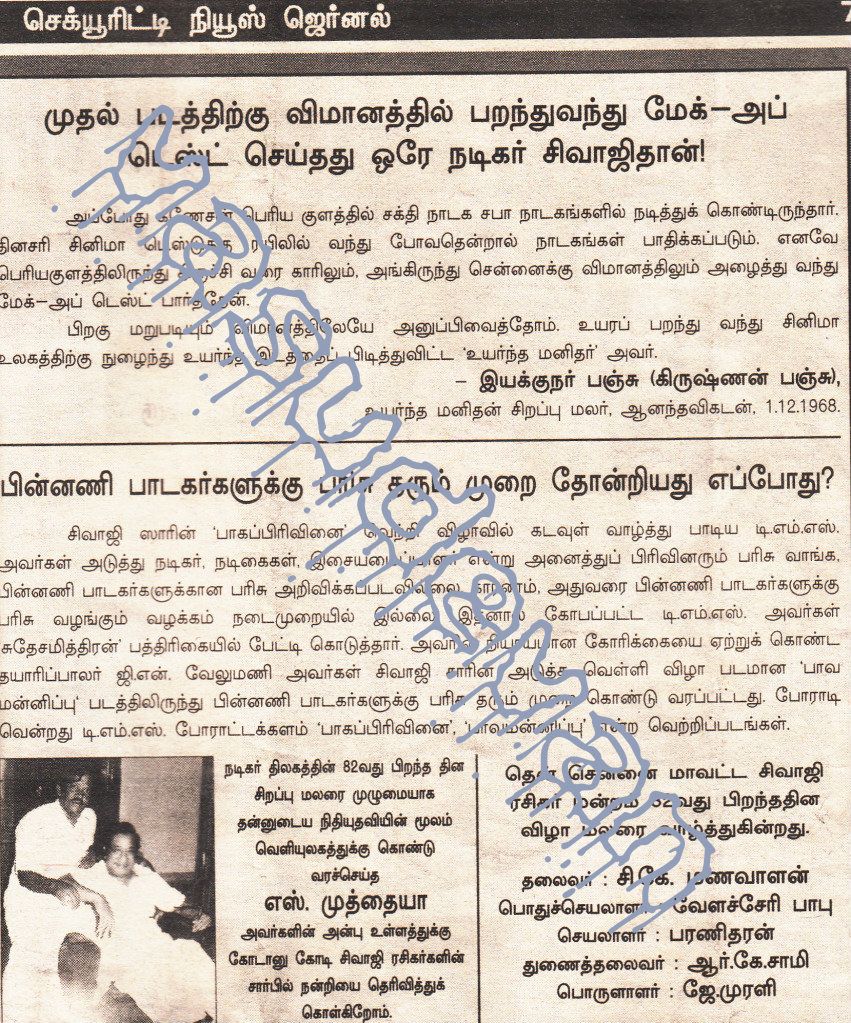 செக்யூரிட்டி நியூஸ் ஜெர்னல்
7
முதல் படத்திற்கு விமானத்தில் பறந்துவந்து மேக்–அப்
டெஸ்ட் செய்தது ஒரே நடிகர் சிவாஜிதான்!
அப்போது கணேசன் பெரிய குளத்தில் சக்தி நாடக சபா நாடகங்களில் நடித்துக் கொண்டிருந்தார்.
தினசரி சினிமா டெஸ்டுக்கு ரயிலில் வந்து போவதென்றால் நாடகங்கள் பாதிக்கப்படும். எனவே
பெரியகுளத்திலிருந்து திருச்சி வரை காரிலும், அங்கிருந்து சென்னைக்கு விமானத்திலும் அழைத்து வந்து
மேக்–அப் டெஸ்ட் பார்த்தேன்.
பிறகு மறுபடியும் விமானத்திலேயே அனுப்பிவைத்தோம். உயரப் பறந்து வந்து சினிமா
உலகத்திற்கு நுழைந்து உயர்ந்த இடத்தைப் பிடித்துவிட்ட 'உயர்ந்த மனிதர்' அவர்.
– இயக்குநர் பஞ்சு (கிருஷ்ணன் பஞ்சு),
உயர்ந்த மனிதன் சிறப்பு மலர், ஆனந்தவிகடன், 1.12.1968.
பின்னணி பாடகர்களுக்கு பரிசு தரும் முறை தோன்றியது எப்போது?
சிவாஜி ஸாரின் 'பாகப்பிரிவினை' வெற்றி விழாவில் கடவுள் வாழ்த்து பாடிய டி.எம்.எஸ்.
அவர்கள் அடுத்து நடிகர், நடிகைகள், இசையமைப்பாளர் என்று அனைத்துப் பிரிவினரும் பரிசு வாங்க,
பின்னணி பாடகர்களுக்கான பரிசு அறிவிக்கப்படவில்லை. காரணம், அதுவரை பின்னணி பாடகர்களுக்கு
பரிசு வழங்கும் வழக்கம் நடைமுறையில் இல்லை. இதனால் கோபப்பட்ட டி.எம்.எஸ். அவர்கள்
'சுதேசமித்திரன்' பத்திரிகையில் பேட்டி கொடுத்தார். அவரின் நியாயமான கோரிக்கையை ஏற்றுக் கொண்ட
தயாரிப்பாலர் ஜி.என். வேலுமணி அவர்கள் சிவாஜி சாரின் அடுத்த வெள்ளி விழா படமான 'பாவ
மன்னிப்பு' படத்திலிருந்து பின்னணி பாடகர்களுக்கு பரிசு தரும் முறை கொண்டு வரப்பட்டது. போராடி
வென்றது டி.எம்.எஸ். போராட்டக்களம் 'பாகப்பிரிவினை', 'பாவமன்னிப்பு' என்ற வெற்றிப்படங்கள்.
நடிகர் திலகத்தின் 82வது பிறந்த தின
சிறப்பு மலரை முழுமையாக
தன்னுடைய நிதியுதவியின் மூலம்
வெளியுலகத்துக்கு கொண்டு
வரச்செய்த
எஸ். முத்தையா
அவர்களின் அன்பு உள்ளத்துக்கு
கோடானு கோடி சிவாஜி ரசிகர்களின்
சார்பில் நன்றியை தெரிவித்துக்
கொள்கிறோம்.
தென் சென்னை மாவட்ட சிவாஜி
ரசிகர் மன்றம் 82வது பிறந்ததின
விழா மலரை வாழ்த்துகின்றது.
தலைவர் : சி.கே. மணவாளன்
பொதுச்செயலாளர் : வேளச்சேரி பாபு
செயலாளர் : பரணிதரன்
துணைத்தலைவர் : ஆர்.கே.சாமி
பொருளாளர் : ஜே.முரளி